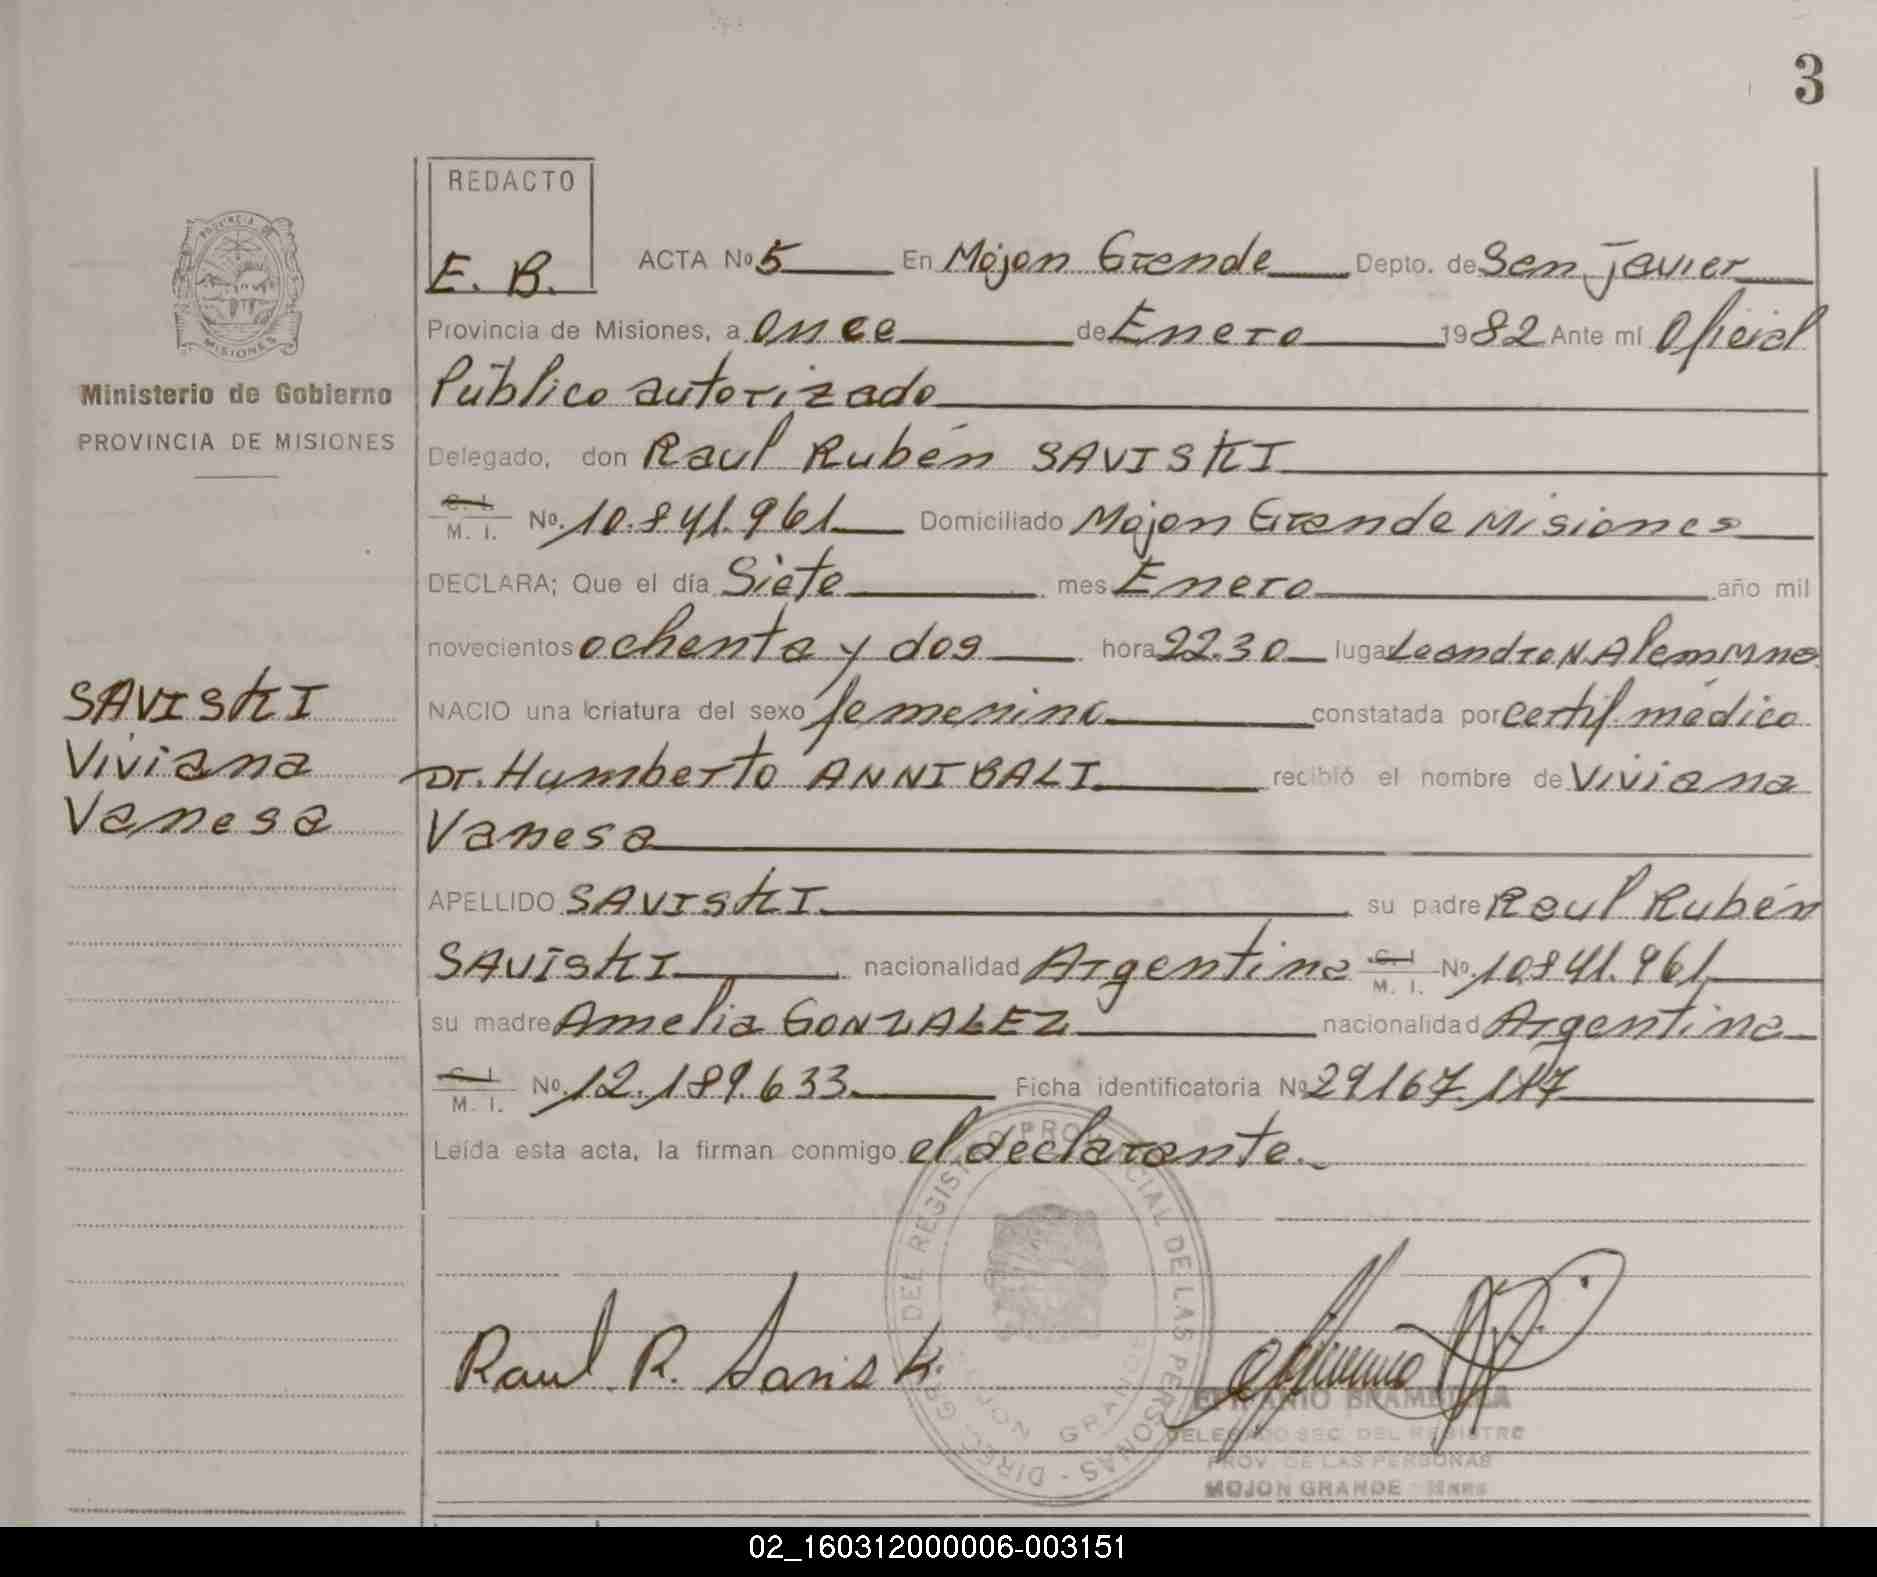 3
REDACTO
E. B.
ACTA No 5 En Mojon Grande Depto. de San Javier
Provincia de Misiones, a Once de Enero 1982 Ante mí Oficial
Público autorizado
Delegado, don Raul Rubén SAVISKI
C. I. M. I. No. 10.841.961 Domiciliado Mojon Grande Misiones
DECLARA; Que el día Siete mes Enero año mil
novecientos ochenta y dos hora 22.30 lugar Leandro N. Alem Mnes
NACIO una criatura del sexo femenino constatada por certif. médico
Dr. Humberto ANNIBALI recibió el nombre de Viviana
Vanesa
APELLIDO SAVISKI su padre Raul Rubén
SAVISKI nacionalidad Argentina C. I. M. I. No. 10.841.961
su madre Amelia GONZALEZ nacionalidad Argentina
C. I. M. I. No. 12.189.633 Ficha identificatoria No 29167.117
Leída esta acta, la firman conmigo el declarante.
PROVINCIA DE
MISIONES
Ministerio de Gobierno
PROVINCIA DE MISIONES
SAVISKI
Viviana
Vanesa
DIREC. GRAL. DEL REGISTRO PROVINCIAL DE LAS PERSONAS
MOJON GRANDE
Raul R. Savisk
EPIFANIO BRAMBILLA
DELEGADO SEC. DEL REGISTRO
PROV. DE LAS PERSONAS
MOJON GRANDE - Mnes
02_160312000006-003151